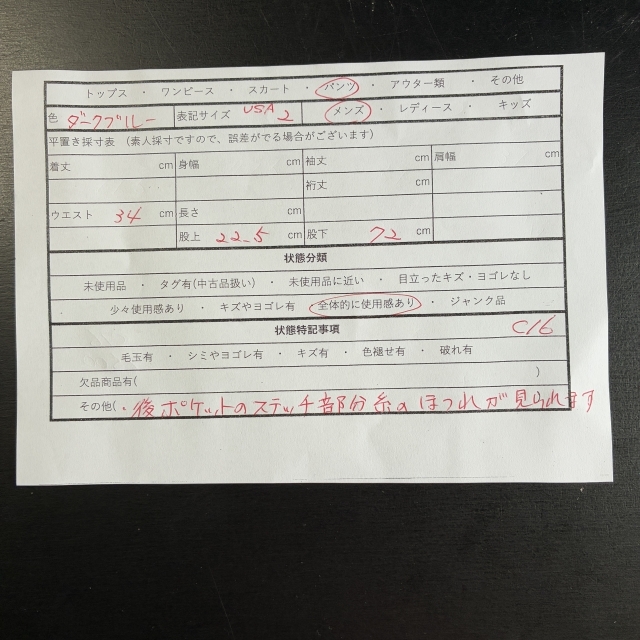 トップス ・ ワンピース ・ スカート ・ パンツ ・ アウター類 ・ その他
色 ダークブルー 表記サイズ USA 2 メンズ ・ レディース ・ キッズ
平置き採寸表 (素人採寸ですので、誤差がでる場合がございます)
着丈 cm 身幅 cm 袖丈 cm 肩幅 cm
裄丈 cm
ウエスト 34 cm 長さ cm
股上 22.5 cm 股下 72 cm
状態分類
未使用品 ・ タグ有(中古品扱い) ・ 未使用品に近い ・ 目立ったキズ・ヨゴレなし
少々使用感あり ・ キズやヨゴレ有 ・ 全体的に使用感あり ・ ジャンク品
状態特記事項 C16
毛玉有 ・ シミやヨゴレ有 ・ キズ有 ・ 色褪せ有 ・ 破れ有
欠品商品有( )
その他( ・後ポケットのステッチ部分糸のほつれが見られます